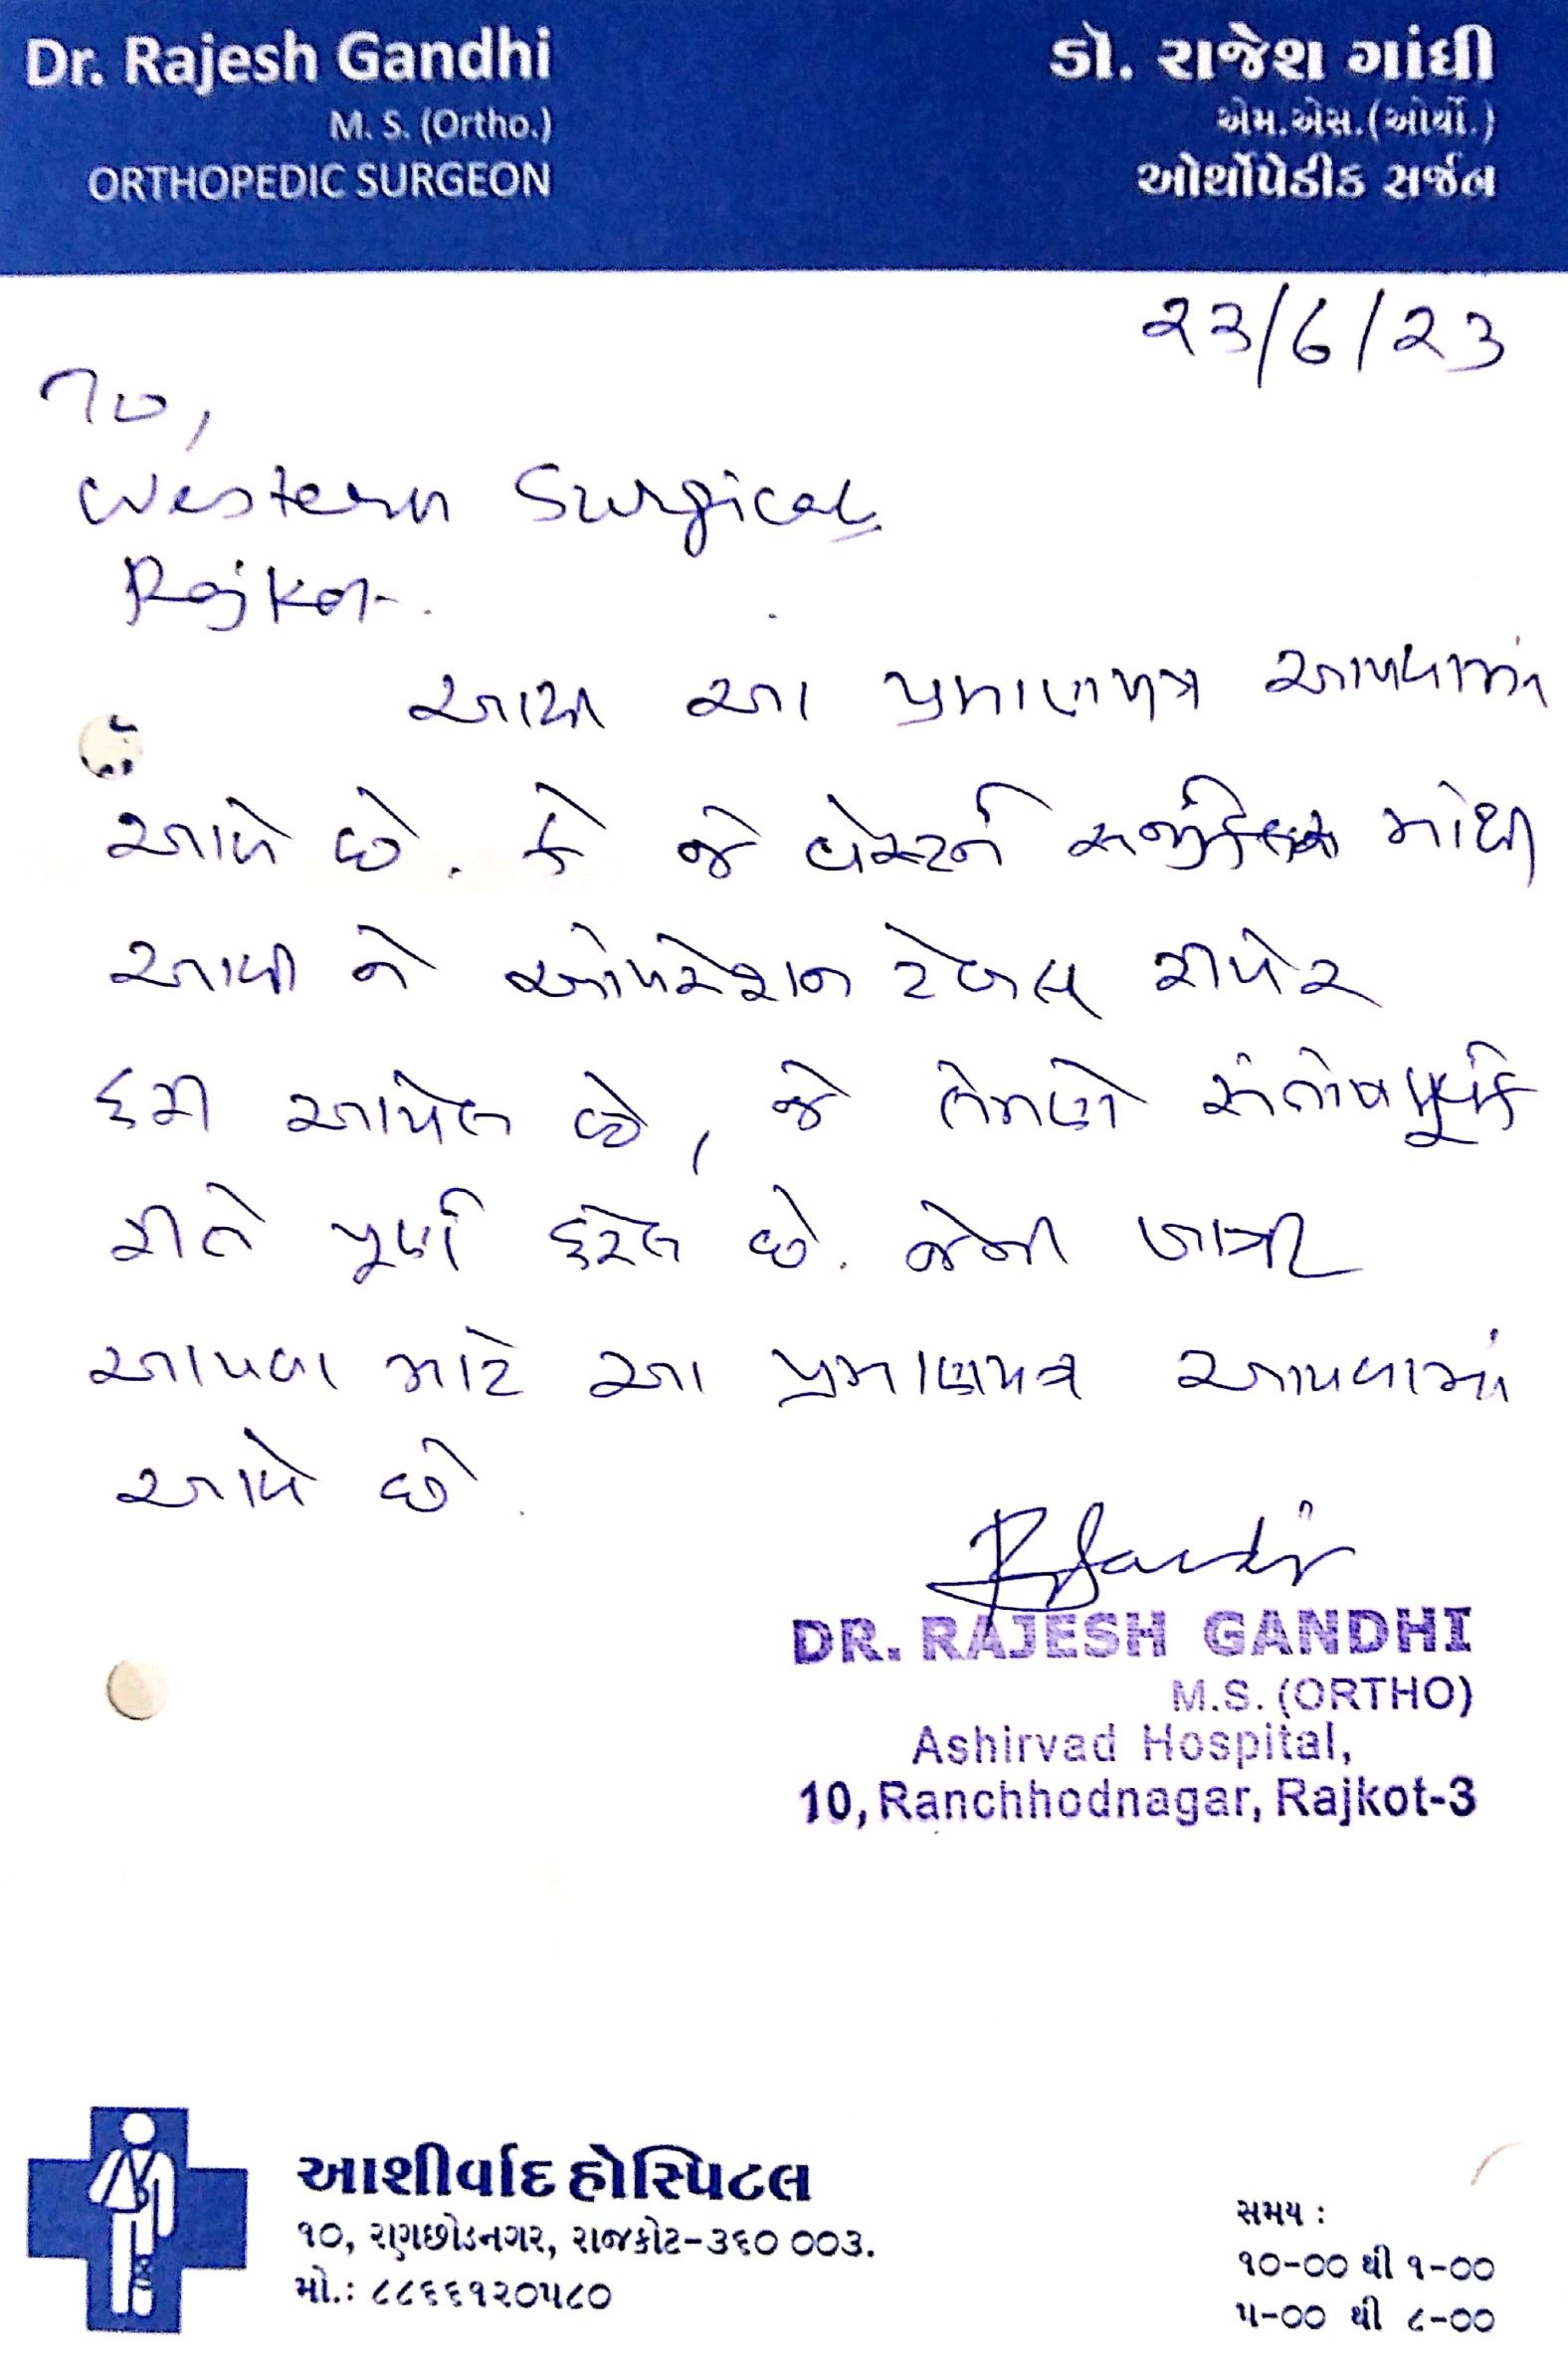 Dr. Rajesh Gandhi
M. S. (Ortho.)
ORTHOPEDIC SURGEON
ડૉ. રાજેશ ગાંધી
એમ.એસ.(ઓર્થો.)
ઓર્થોપેડીક સર્જન
23/6/23
To,
Western Surgical
Rajkot.
આથી આ પ્રમાણપત્ર આપવામાં
આવે છે. કે જે વેસ્ટર્ન સર્જીકલ માંથી
આવી ને ઓપરેશન ટેબલ રીપેર
કરી આપેલ છે, જે તેમણે સંતોષપૂર્વક
રીતે પૂર્ણ કરેલ છે. જેની ખાત્રી
આપવા માટે આ પ્રમાણપત્ર આપવામાં
આવે છે.
DR. RAJESH GANDHI
M.S. (ORTHO)
Ashirvad Hospital,
10, Ranchhodnagar, Rajkot-3
આશીર્વાદ હોસ્પિટલ
૧૦, રણછોડનગર, રાજકોટ-૩૬૦ ૦૦૩.
મો.: ૮૮૬૬૧૨૦૫૮૦
સમય :
૧૦-૦૦ થી ૧-૦૦
૫-૦૦ થી ૮-૦૦